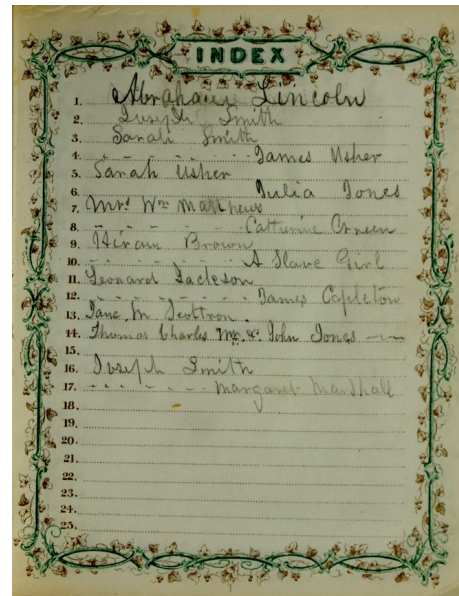 INDEX
1. Abraham Lincoln
2. Joseph Smith
3. Sarah Smith
4. James Usher
5. Sarah Usher
6. Julia Jones
7. Mrs Wm Matthews
8. Catherine
9. Hiram Brown
10. A Slave Girl
11. Leonard Jackson
12. James Capleton
13. Jane M. Scottron.
14. Thomas Charles Mr. & John Jones
15.
16. Joseph Smith
17. Margaret Marshall
18.
19.
20.
21.
22.
23.
24.
25.